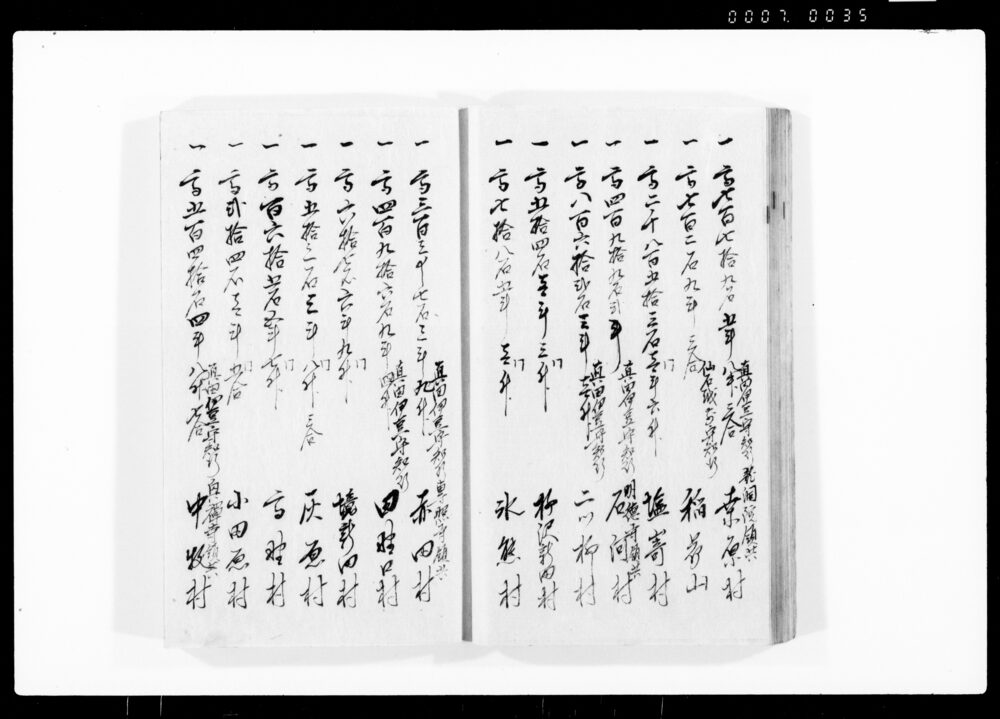 0007. 0035
一 高七百七拾九石五斗八升三合 真田伊豆守知行 龍洞院領共 桑原村
一 高七百二石九斗三合 仙石越前守知行 稲荷山
一 高二千八百五拾三石壱斗六升 塩崎村
一 高四百九拾九石弐斗 真田伊豆守知行 明徳寺領共 石川村
一 高八百六拾弐石三斗壱升 真田伊豆守知行 二ツ柳村
一 高五拾四石壱斗三升 柳沢新田村
一 高七拾八石五斗壱升 氷熊村
一 高三百三十七石三斗九升 真田伊豆守知行 東照寺領共 赤田村
一 高四百九拾六石九斗四升 真田伊豆守知行 田野口村
一 高六拾 石六斗九升 新田村
一 高五拾三石三斗八升三合 灰原村
一 高百六拾五石 斗七升 高野村
一 高弐拾四石壱斗 五合 小田原村
一 高五百四拾石四斗八升七合 真田伊豆守知行 寺領共 中牧村